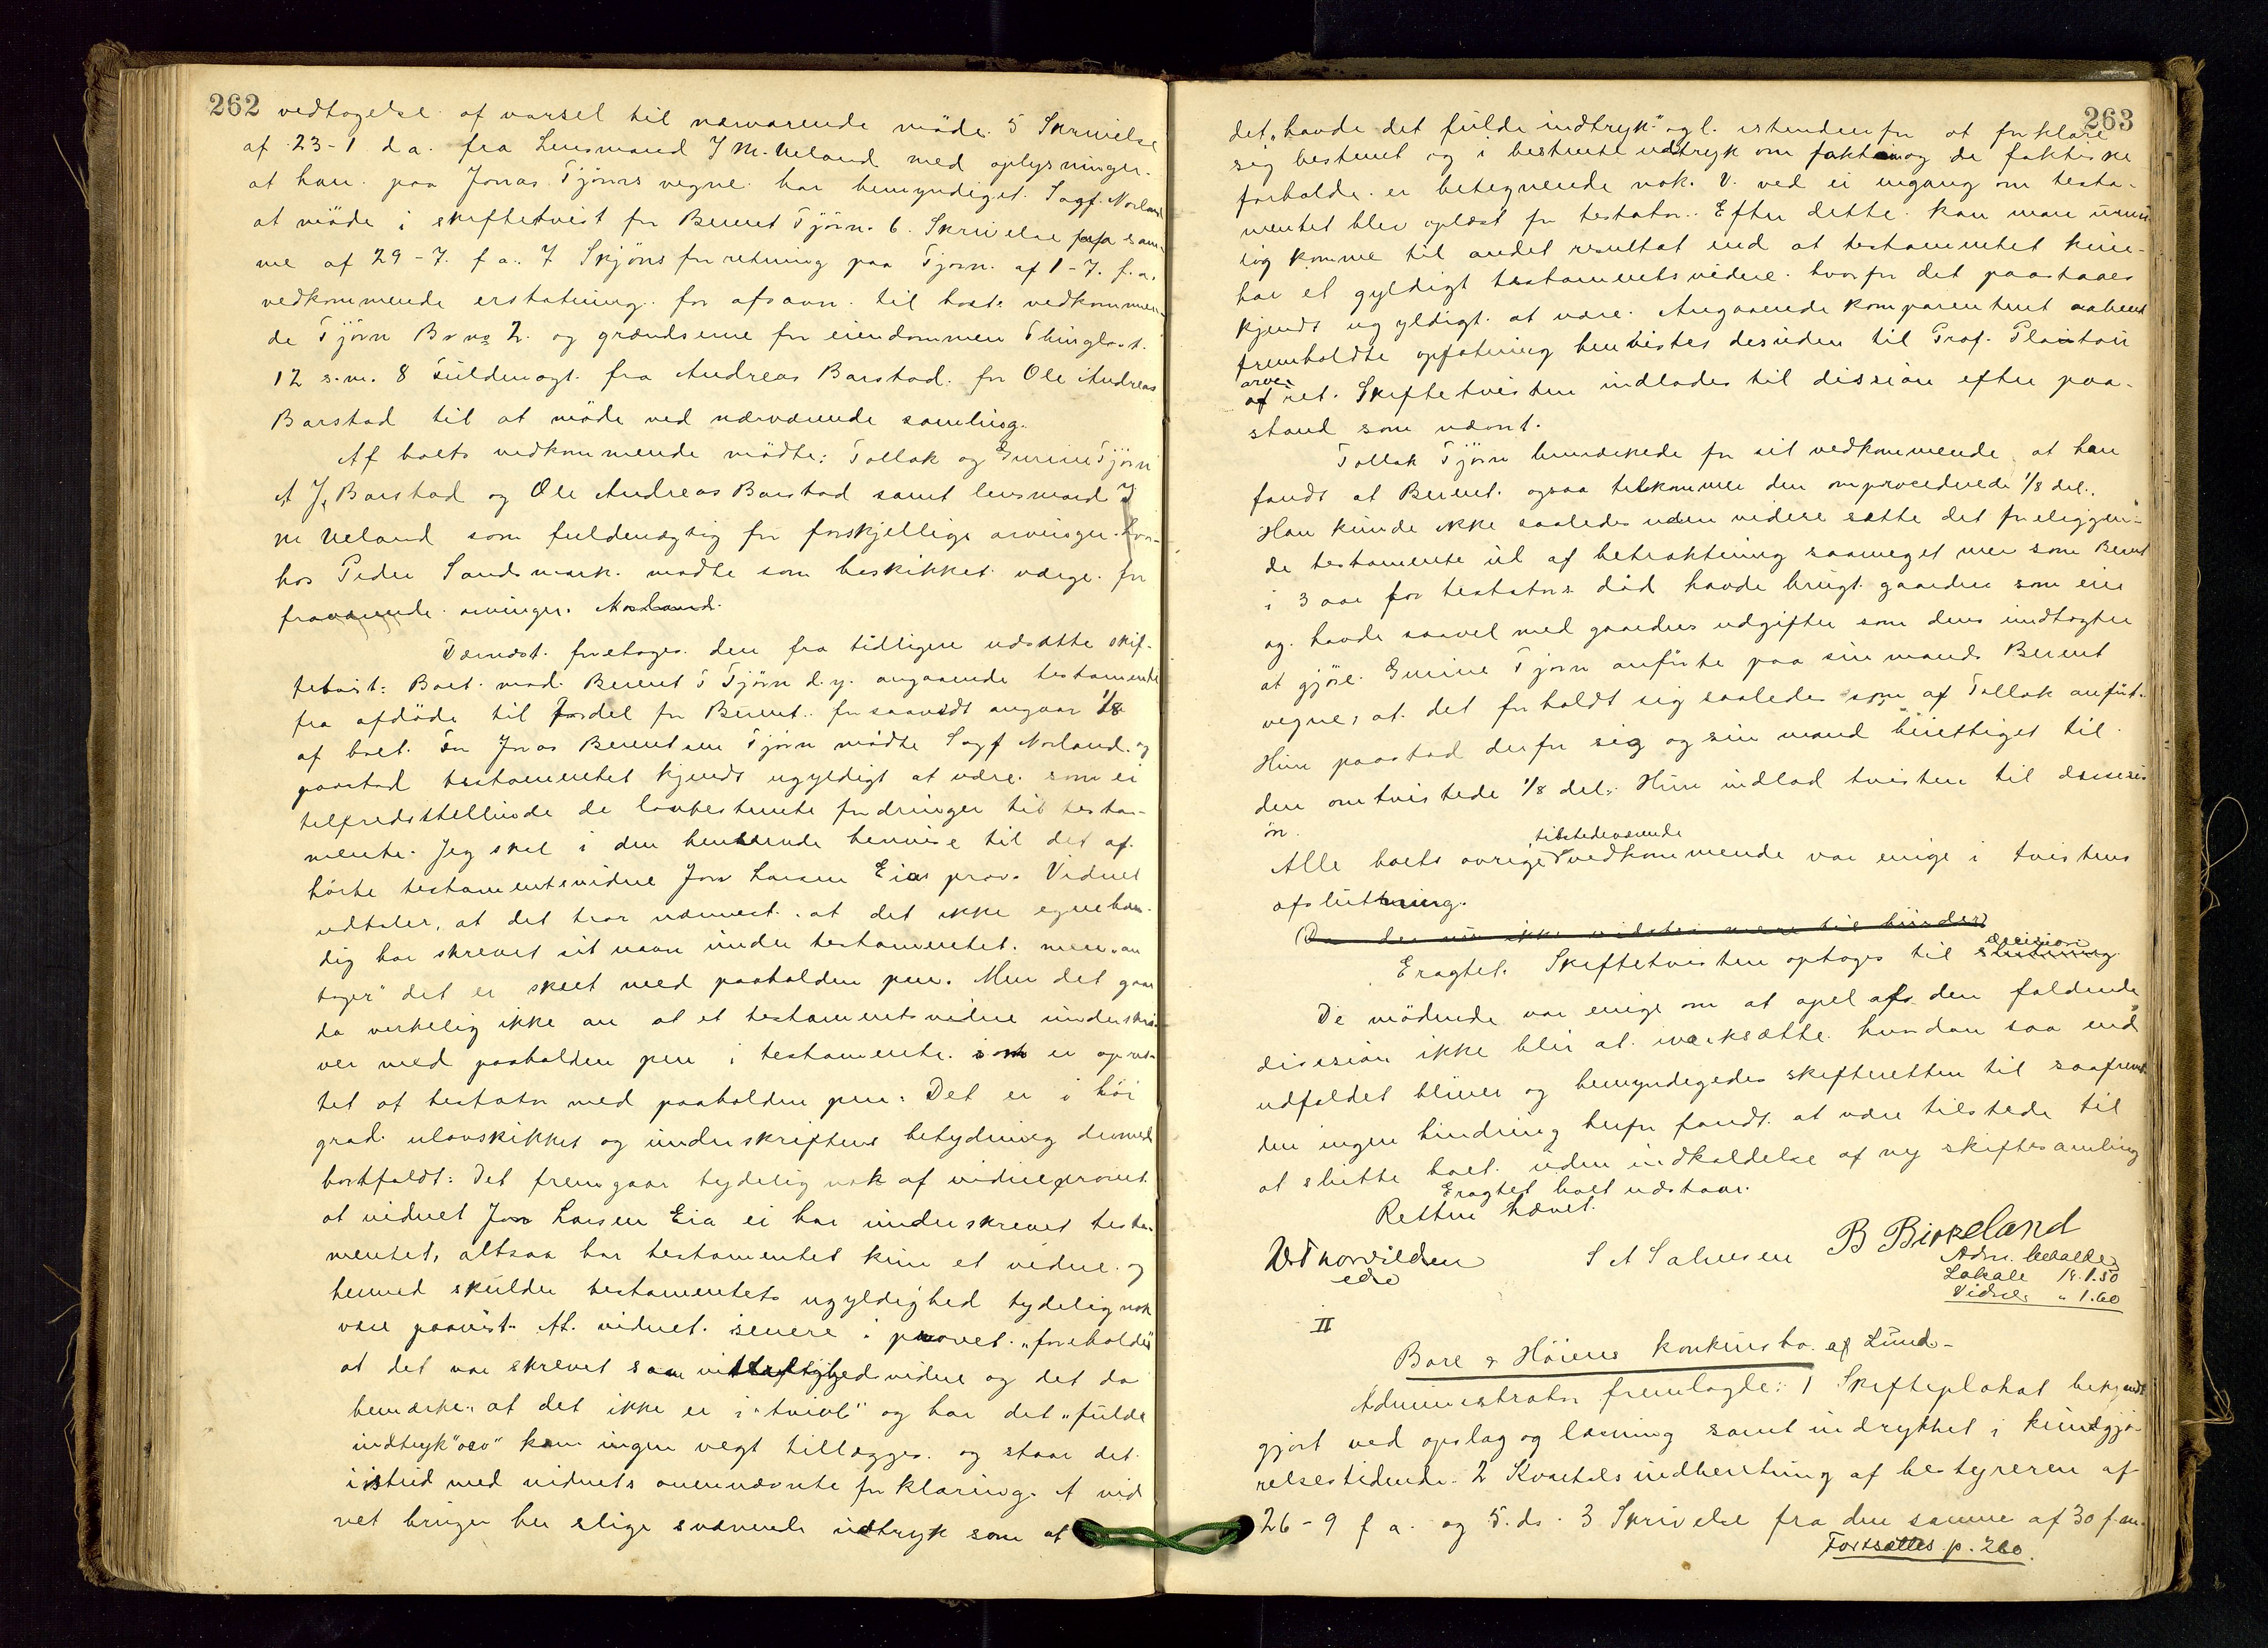 262
vedtagelse af varsel til nærværende möde. 5 Skrivelse
af 23-1 d a. fra Lensmand J M. Ueland med oplysninger.
at han paa Jonas Tjörns vegne har bemyndiget Sagf. Norland
at möde i skiftetvist for Berent Tjörn. 6. Skrivelse fra sam-
me af 29-7. f a. 7 Skjönsforretning paa Tjörn af 1-7. f. a.
vedkommende erstatning for afsavn til host. vedkommen-
de Tjörn Br no 2. og grændserne for eiendommen Thinglæst.
12 s. m. 8 Fuldmagt fra Andreas Barstad for Ole Andreas
Barstad til at möde ved nærværende samling.
Af boets vedkommende mödte: Tollak og Gurine Tjörn
A J. Barstad og Ole Andreas Barstad samt lensmand J
M Ueland som fuldmægtig for forskjellige arvinger. hvor-
hos Peder Sandsmark mødte som beskikket værge for
fraværende arvinger. Norland.
Dernæst foretoges den fra tidligere udsatte skif-
tetvist: Boet mod Berent T Tjörn d. y. angaaende testamente
fra afdöde til fordel for Berent. forsaavidt angaar 1/8
af boet. For Jonas Berentsen Tjörn mödte Sagf Norland og
paastod testamentet kjendt ugyldigt at være som ei
tilfredsstillende de lovbestemte fordringer til testa-
mente. Jeg skal i den henseende henvise til det af-
hörte testamentsvidne Jon Larsen Eias prov. Vidnet
udtaler, at det tror nærmest at det ikke egenhæn-
dig har skrevet sit navn under testamentet. men "an
tager" det er skeet med paaholden pen. Men det gaar
da verkelig ikke an at et testamentsvidne underskri-
ver med paaholden pen i testamente som er opret-
tet af testator med paaholden pen. Det er i höi
grad ulovskikket og underskriftens betydning dermed
bortfaldt. Det fremgaar tydelig nok af vidneprovet
at vidnet Jon Larsen Eia ei har underskrevet testa-
mentet, altsaa har testamentet kun et vidne. og
hermed skulde testamentets ugyldighed tydelig nok
være paavist. At vidnet senere i provet. "foreholdes"
at det var skrevet som vitterlighedsvidne og det da
bemærker at det ikke er i "tvivl" og har det "fulde
indtryk" osv kan ingen vegt tillægges og staar det
i strid med vidnets ovennævnte forklaring. At vid
net bruger her slige svævende udtryk som at
263
det "havde det fulde indtryk" og l. istendenfor at forklare
sig bestemt og i bestemte udtryk om faktum og de faktiske
forholde er betegnende nok. V. ved ei engang om testa-
mentet blev oplæst for testator. Efter dette kan man umu-
lig komme til andet resultat end at testamentet kun
har et gyldigt testamentsvidne. hvorfor det paastaaes
kjendt ugyldigt at være. Angaaende komparentent
fremholdte opfatning henvistes desuden til Prof. Platous
arve-
af ret. Skiftetvisten indlades til dissision efter paa-
stand som nævnt.
Tollak Tjörn bemærkede for sit vedkommende at han
fandt at Berent ogsaa tilkommer den omprocederede 1/8 del.
Han kunde ikke saaledes uden videre sætte det foreliggen-
de testamente ud af betraktning saameget mer som Berent
i 3 aar for testators död havde brugt gaarden som eie
og havde saavel med gaardens udgifter som dens indtægter
at gjöre. Gurine Tjörn anförte paa sin mands Berent
vegne, at det forholdt sig saaledes som af Tollak anfört.
Hun paastod derfor sig og sin mand berettiget til
den omtvistede 1/8 del. Hun indlod tvisten til dsisisi
ön.
tilstedeværende
Alle boets øvrige vedkommende var enige i tvistens
afslutning.
Da der nu ikke videre
decision
Eragtet. Skiftetvisten optages til slutning
De mödende var enige om at apel afs den faldende
disision ikke blir at iværksætte hvordan saa end
udfaldet bliver og bemyndigedes skifteretten til saafremt
den ingen hindring herfor fandt at være tilstede til
at slutte boet uden indkaldelse af ny skiftesamling
Eragtet boet udstaar.
Retten hævet.
B Birkeland
S A Salvesen
Adm. betalte
Lokale kr. 1.50
Vidner " 1.60
II
Bore & Höiens konkursbo. af Lund-
Administrator fremlagte: 1 Skifteplakat bekjendt
gjort ved opslag og læsning samt indrykket i kundgjö-
relsestidende. 2 Kvartalsindberetning af bestyreren af
26-9 f a. og 5. ds. 3 Skrivelse fra den samme af 30 f. m.
Fortsættes p. 260.